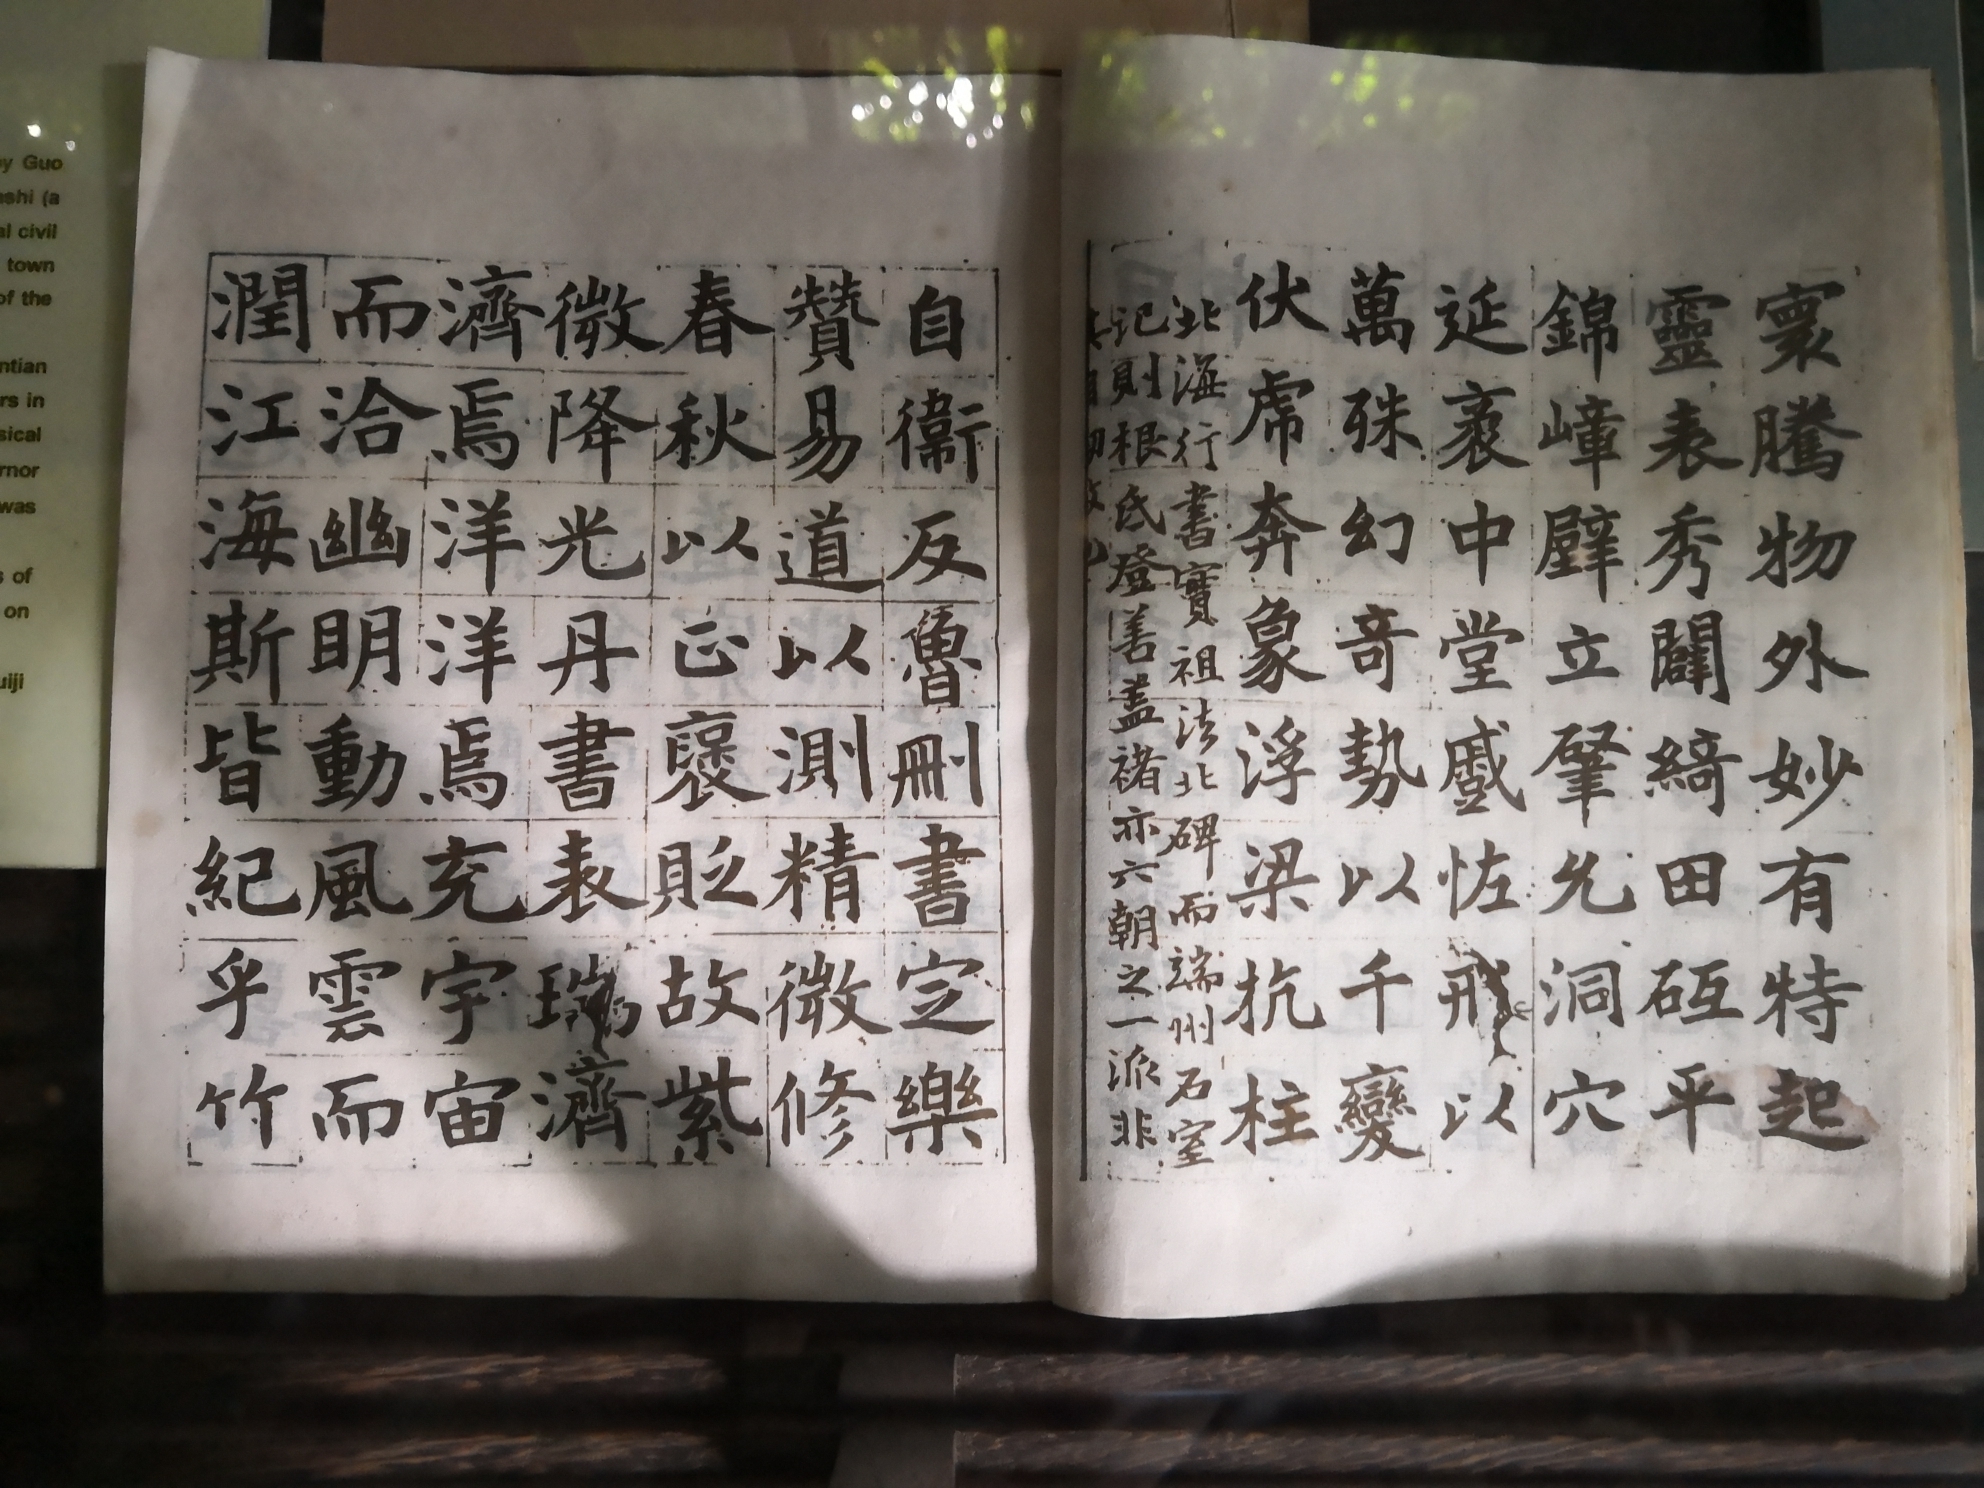 寰騰物外妙有特起
靈表秀闢綺田砥平
錦嶂壁立肇允洞穴
延袤中堂戲恠形以
萬殊幻奇勢以千變
伏虎奔象浮梁抗柱
北海行書實祖法北碑而端州石室
記則根氐登善蓋褚亦六朝之一派非
自衞反魯刪書定樂
贊易道以測精微修
春秋以正襃貶故紫
微降光丹書表瑞濟
濟焉洋洋焉充宇宙
而洽幽明動風雲而
潤江海斯皆紀乎竹
by Guo
nshi (a
al civil
town
of the
ntian
rs in
sical
rnor
was
s of
on
uiji